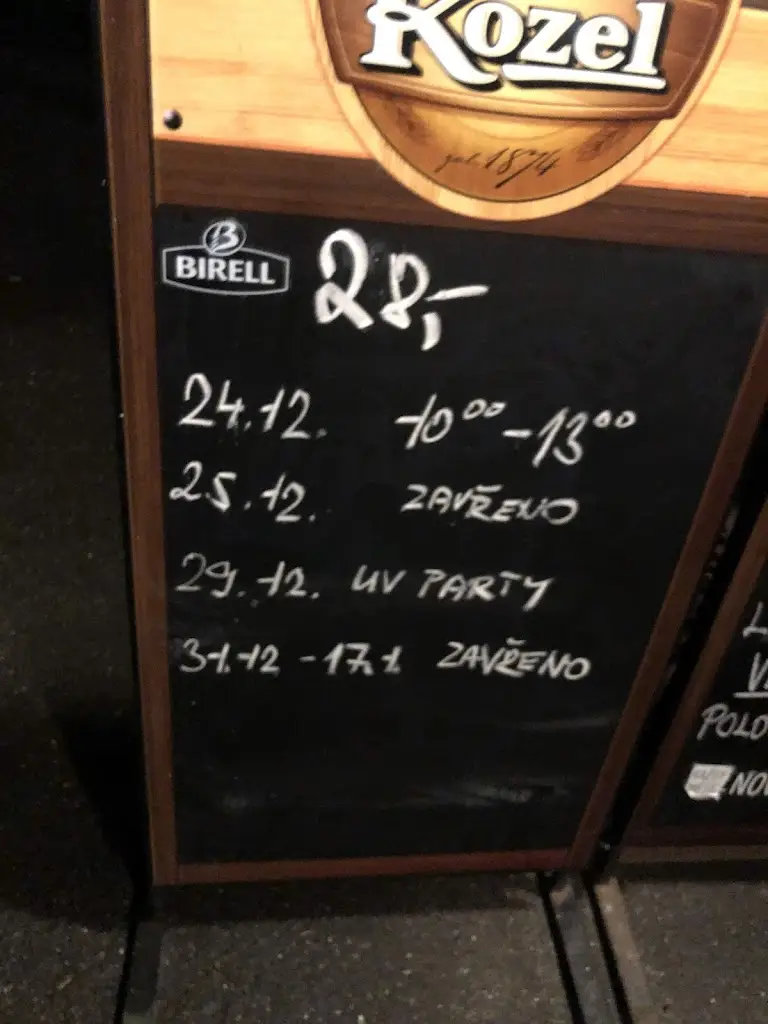 Kozel
1874
B
BIRELL 28,-
24.12. 10⁰⁰-13⁰⁰
25.12. ZAVŘENO
29.12. UV PARTY
31.12 - 17.1 ZAVŘENO